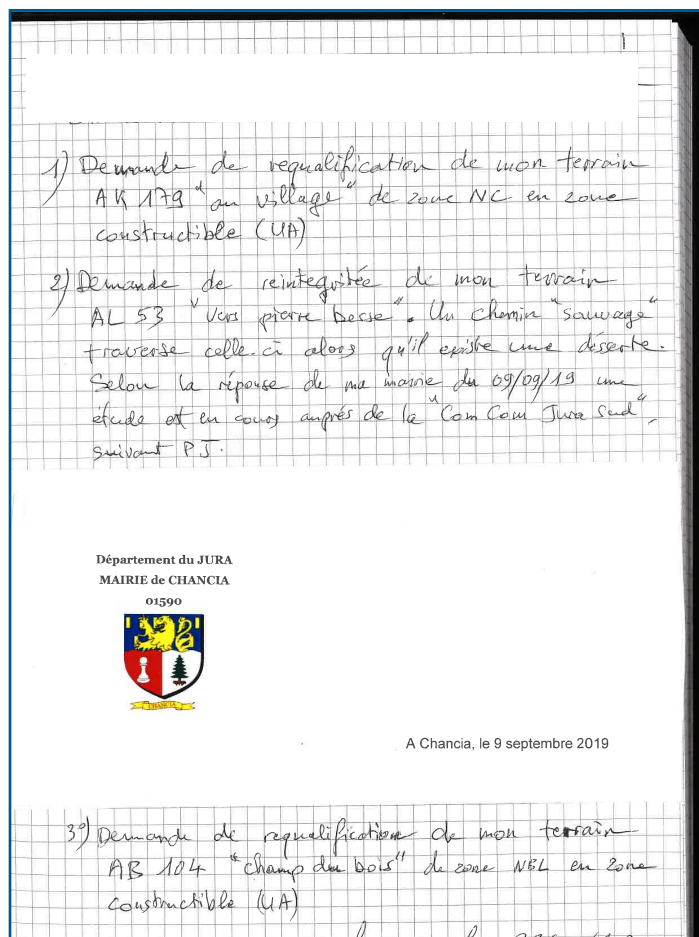 1) Demande de requalification de mon terrain
AK 179 "au village" de zone NC en zone
constructible (UA)
2) Demande de reintegritée de mon terrain
AL 53 "vers pierre besse". Un chemin "sauvage"
traverse celle-ci alors qu'il existe une déserte.
Selon la réponse de ma mairie du 09/09/19 une
étude est en cours auprés de la "Com Com Jura Sud",
suivant P.J.
Département du JURA
MAIRIE de CHANCIA
01590
CHANCIA
A Chancia, le 9 septembre 2019
3°) Demande de requalification de mon terrain
AB 104 "champ du bois" de zone NBL en zone
constructible (UA)